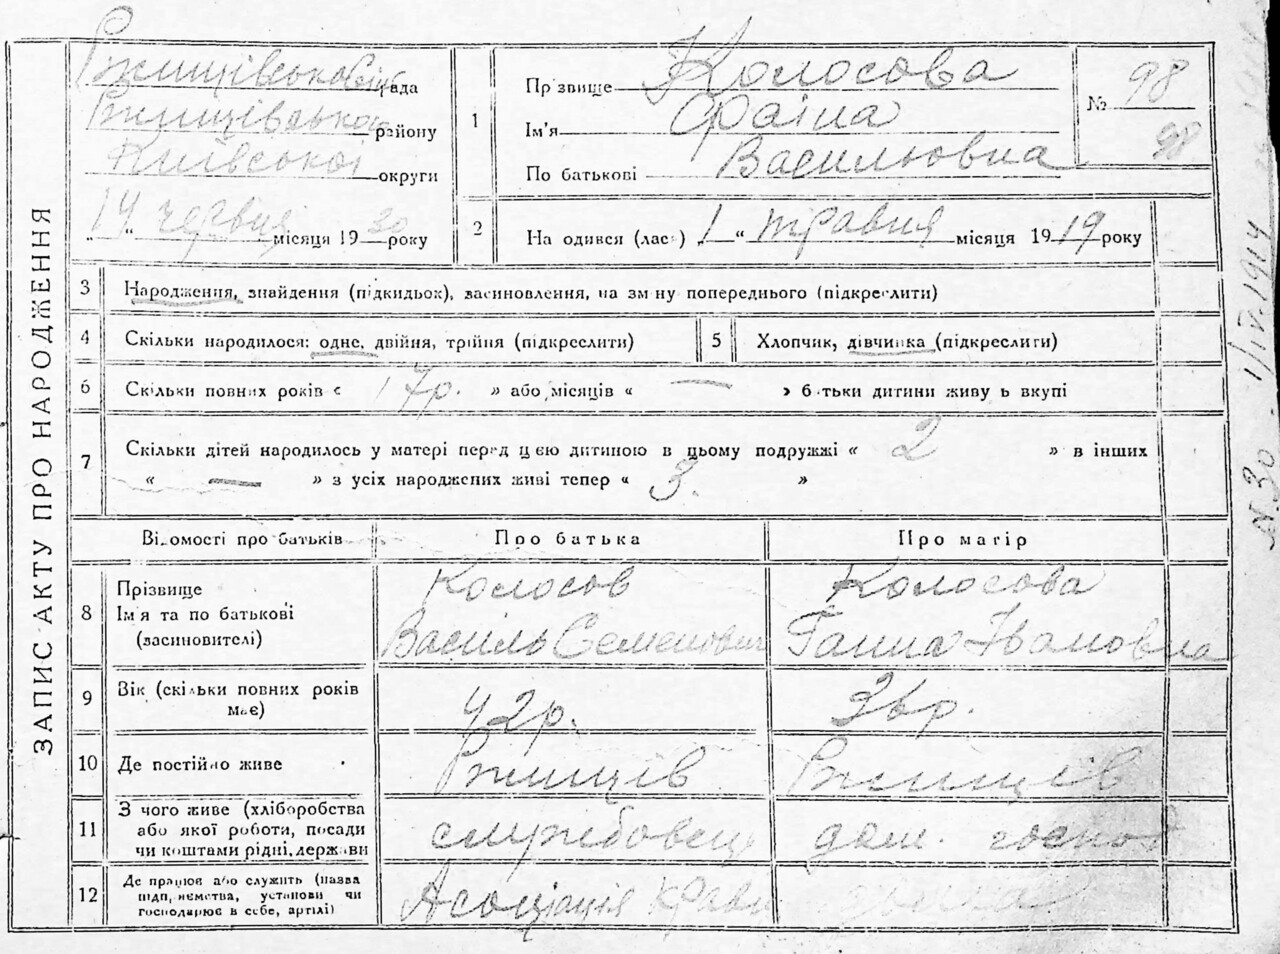 ЗАПИС АКТУ ПРО НАРОДЖЕННЯ
Ржищівська рада
Ржищівського району
Київської округи
„14“ червня місяця 1930 року
1
Прізвище Колосова
Ім'я Фаіна
По батькові Василювна
№ 98
98
2
На одився (лась) „1“ травня місяця 1919 року
3 Народження, знайдення (підкидьок), засиновлення, на зм ну попереднього (підкреслити)
4 Скільки народилося: одне, двійня, трійня (підкреслити)
5 Хлопчик, дівчинка (підкреслити)
6 Скільки повних років « 17р. » або місяців « — » б тьки дитини живу ь вкупі
7 Скільки дітей народилось у матері перед цією дитиною в цьому подружжі « 2 » в інших
« — » з усіх народжених живі тепер « 3. »
Відомості про батьків Про батька Про матір
8 Прізвище
Ім'я та по батькові
(засиновителі)
Колосов
Василь Семенович
Колосова
Ганна Івановна
9 Вік (скільки повних років має)
42р.
36р.
10 Де постійно живе
Ржищів
Ржищів
11 З чого живе (хліборобства
або якої роботи, посади
чи коштами рідні, держави
службовець
дом. госпо
12 Де працює або служить (назва
підприємства, установи чи
господарює в себе, артілі)
Асоціація
№30 1/IV.1914